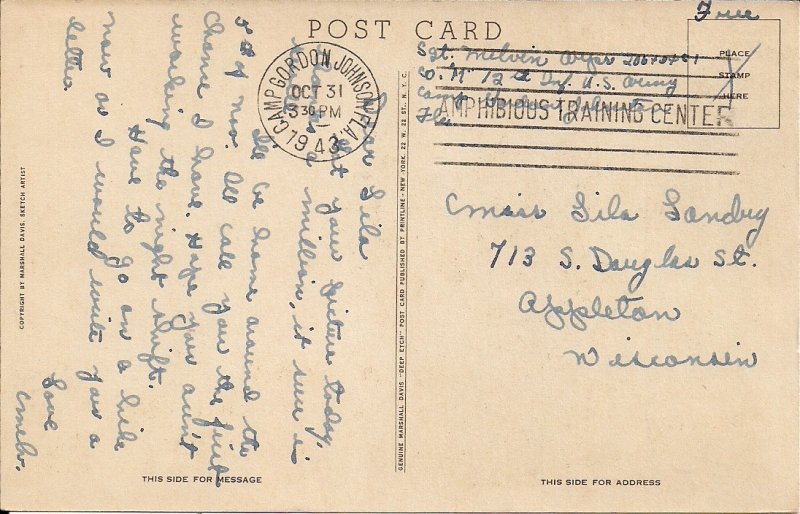 POST CARD
Free
PLACE
STAMP
HERE
Sgt. Melvin
Co. M 12th Inf. U.S. Army
Camp Gordon Johnston
Fla
CAMP GORDON JOHNSTON, FLA.
OCT 31
3 30 PM
1943
AMPHIBIOUS TRAINING CENTER
Dear Lila
Got your picture today,
Thanks a million, it sure is
Ill be home around the
1st of Nov Ill call you the first
chance I have. Hope you ain't
working the night shift.
Have to go on a hike
now or I would write you a
letter
Love
Melv.
Miss Lila Landry
713 S. Douglas St.
Appleton
Wisconsin
COPYRIGHT BY MARSHALL DAVIS, SKETCH ARTIST
GENUINE MARSHALL DAVIS "DEEP ETCH" POST CARD PUBLISHED BY PRINTLINE - NEW YORK, 22 W. 22 ST. N. Y. C.
THIS SIDE FOR MESSAGE
THIS SIDE FOR ADDRESS